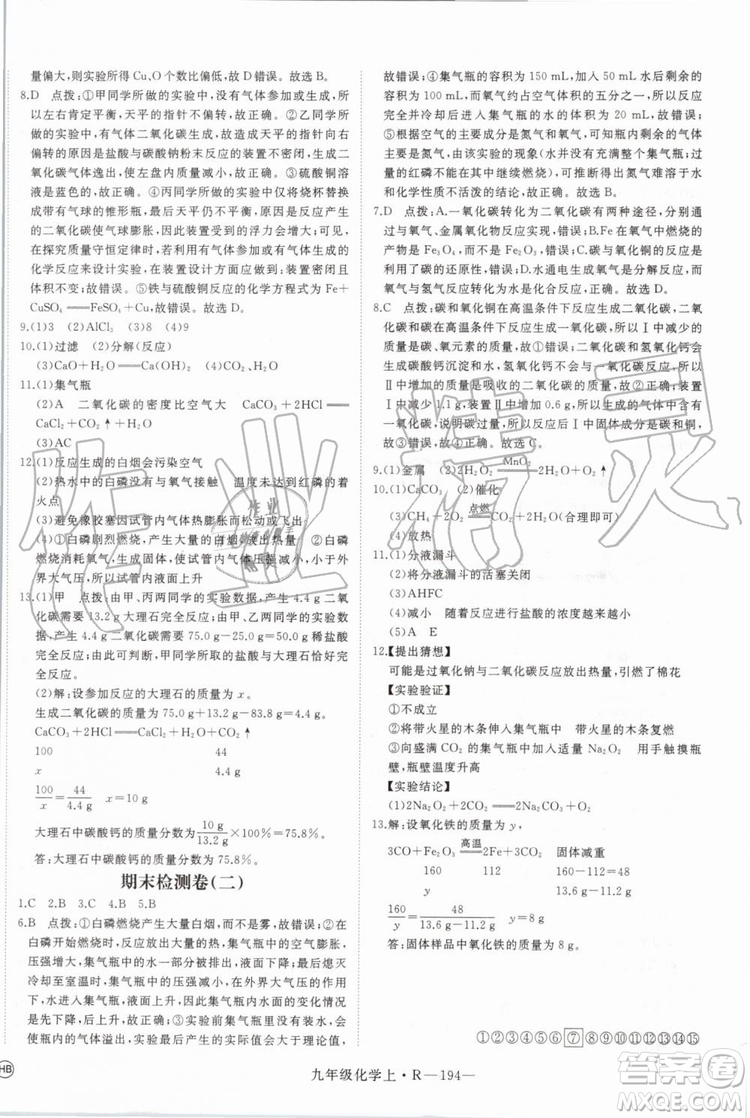 量偏大，则实验所得 Cu、O 个数比偏低，故 D 错误。故选 B。
8.D　点拨：①甲同学所做的实验中，没有气体参加反应，所以左右肯定平衡，天平的指针不偏转，故错误；②乙同学所做的实验中，有气体二氧化碳生成，天平的指针向右偏转的原因是盐酸与碳酸钠粉末反应的装置不密闭，生成二氧化碳气体逸出，使左盘内质量减小，故错误；③硫酸铜溶液是蓝色的，故错误；④丁同学只要将小烧杯替换成带有气球的锥形瓶，最后天平仍不能平衡，原因是反应产生的二氧化碳导致气球膨胀，浮力变大，所以天平指针还是向右偏，因此该装置还是不能验证质量守恒定律，所以在探究质量守恒定律时，对于有气体参加或有气体生成的化学反应实验，一定要在密闭容器中进行且不能有浮力的影响，故错误。⑤铁与硫酸铜溶液的化学方程式为 Fe＋
CuSO₄══FeSO₄＋Cu，故正确。故选 D。
9.(1)3　(2)AlCl₃　(3)8　(4)9
10.(1)过滤　(2)分解(反应)
(3)CaO＋H₂O══Ca(OH)₂　(4)CO₂
11.(1)集气瓶
(2)A　二氧化碳的密度比空气大　CaCO₃＋2HCl══
CaCl₂＋H₂O＋CO₂↑
(3)AC
12.(1)反应生成的白烟会污染空气
(2)热水中的白磷没有与氧气接触　温度未达到红磷的着火点
(3)避免橡胶塞因试管内气体膨胀而松动或飞出
(4)白磷剧烈燃烧，产生大量的白烟　白磷熄灭冷却后，白磷燃烧消耗氧气，生成固体，使试管内气体压强减小，小于外界大气压，使试管内液面上升
13.(1)甲　由甲、丙两同学的实验数据，产生 4.4 g 二氧化碳需要 13.2 g 大理石可知，甲同学的大理石过量；由甲、乙两同学实验数据，产生 4.4 g 二氧化碳需要 50.0 g 稀盐酸可知，盐酸适量。由此可判断，甲同学所取的盐酸与大理石中的碳酸钙恰好完全反应
(2)解：设参加反应的大理石的质量为 x。
生成二氧化碳的质量为 75.0 g＋13.2 g－83.8 g＝4.4 g
CaCO₃＋2HCl══CaCl₂＋H₂O＋CO₂↑
100　44
x　4.4 g
100/x＝44/4.4 g　x＝10 g
大理石中碳酸钙的质量分数为10 g/13.2 g×100%＝75.8%。
答：大理石中碳酸钙的质量分数为 75.8%。
期末检测卷(二)
1.C　2.B　3.C　4.B　5.B
6.B　点拨：①白磷燃烧产生大量白烟，而不是雾，故错误；②在白磷开始燃烧时，由于放出热量，集气瓶中的空气膨胀，压强增大，待白磷燃烧后，集气瓶中的氧气消耗，白磷熄灭冷却至室温时，集气瓶中的压强减小，故集气瓶中压强的变化情况是先变大后变小，故错误；③由于集气瓶中的压强减小，水会进入集气瓶，集气瓶内水的多少会影响进入集气瓶中水的体积，集气瓶内若没有装水，会有一部分水残留在导管内，使测定的气体体积偏小，最终会影响实验结论，
故错误；④集气瓶的容积为 150 mL，加入 50 mL 水后剩余的容积为 100 mL，而氧气约占空气体积的五分之一，所以反应完全并冷却后，进入集气瓶中水的体积为 20 mL，故错误；⑤集气瓶空气的主要成分是氮气和氧气，实验后剩余的气体主要是氮气，由集气瓶中剩余气体不能使白磷继续燃烧的实验现象(过量的红磷不能在其中继续燃烧)，可推断出氮气难溶于水，也可以说明氮气不活泼的结论，故正确。故选 B。
7.D　点拨：A.一氧化碳转化为二氧化碳有两种途径，分别通过与氧气、金属氧化物的反应实现，故错误；B.Fe 在氧气中燃烧的产物是 Fe₃O₄，故错误；C.碳与氧化铜的反应，体现了碳的还原性，故错误；D.水通电生成氧气的反应是分解反应，故正确。故选 D。
8.C　点拨：碳和氧化铜在高温条件下反应生成铜和二氧化碳，二氧化碳和碳在高温条件下反应生成一氧化碳，所以Ⅰ中减少的是碳、氧元素的质量，故①错误；二氧化碳和氢氧化钙反应生成碳酸钙沉淀和水，氢氧化钙不能吸收一氧化碳，所以Ⅱ中增加的质量是吸收的二氧化碳的质量，故②错误；装置Ⅰ中减少 1 g，装置Ⅱ中增加 0.6 g，所以有一氧化碳生成，说明碳过量，所以反应后Ⅰ中固体是碳和铜，所以③错误，④正确。故选 C。
9.(1)金属　(2)2H₂O₂══(MnO₂)2H₂O＋O₂↑
10.(1)CaCO₃　(2)催化
(3)CH₄＋2O₂══(点燃)CO₂＋2H₂O(合理即可)
(4)放热
11.(1)分液漏斗
(2)将分液漏斗的活塞关闭
(3)AHFC
(4)减小　随着反应的进行盐酸的浓度越来越小
(5)A　E
12.【提出猜想】
可能是过氧化钠与二氧化碳反应放出热量，引燃了棉花
【实验验证】
①不成立
②将带火星的木条伸入集气瓶中　带火星的木条复燃
③向盛满 CO₂ 的集气瓶中加入适量 Na₂O₂　用手触摸瓶壁，瓶壁温度升高
【实验结论】
(1)2Na₂O₂＋2CO₂══2Na₂CO₃＋O₂
13.解：设氧化铁的质量为 y，
3CO＋Fe₂O₃══(高温)2Fe＋3CO₂　固体减重
160　112　160－112＝48
y　13.6 g－11.2 g
160/y＝48/(13.6 g－11.2 g)　y＝8 g
答：固体样品中氧化铁的质量为 8 g。
①②③④⑤⑥⑦⑧⑨⑩⑪⑫⑬⑭⑮
HB
九年级化学上·R —194—
作业精灵
MXQE.COM